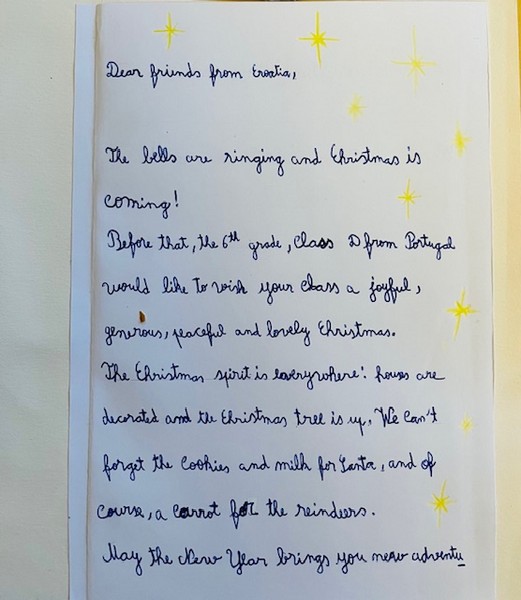 Dear friends from Croatia,
The bells are ringing and Christmas is
coming!
Before that, the 6th grade, Class D from Portugal
would like to wish your class a joyful,
generous, peaceful and lovely Christmas.
The Christmas spirit is everywhere: houses are
decorated and the Christmas tree is up. We can't
forget the cookies and milk for Santa, and of
course, a carrot for the reindeers.
May the New Year brings you new adventu